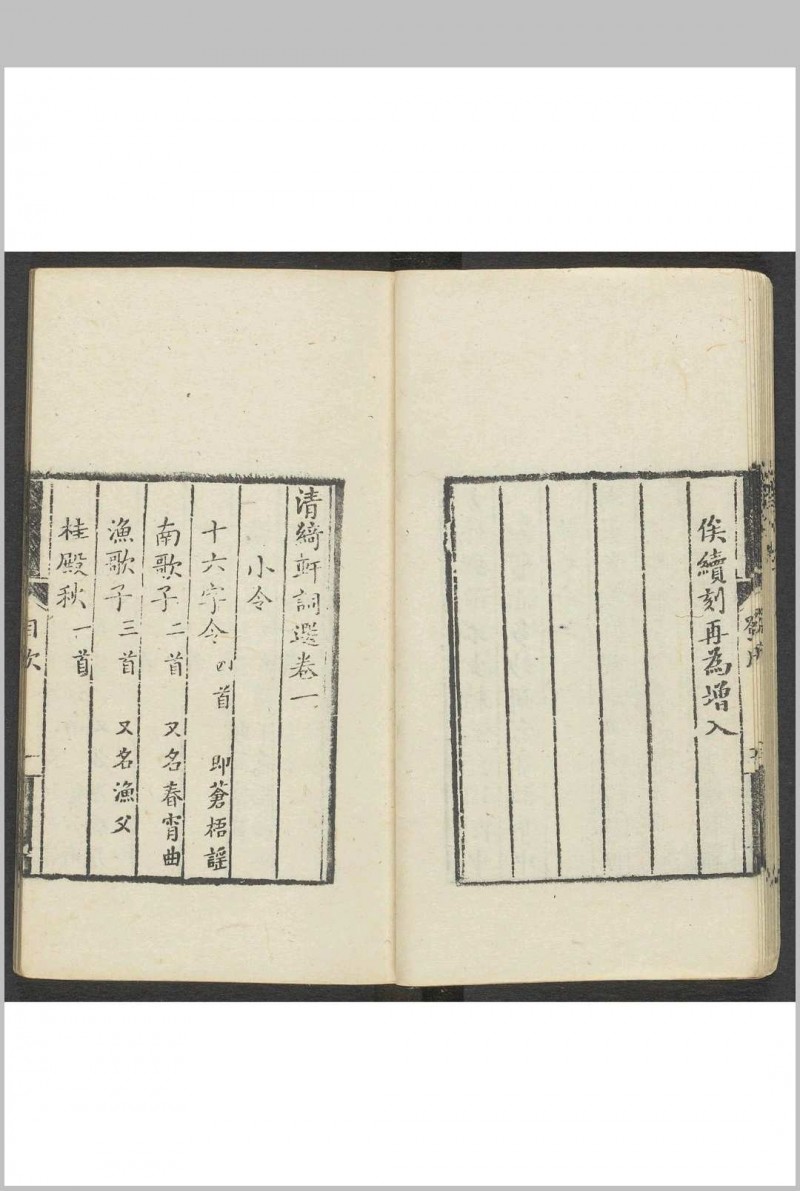 俟續刻再為增入
清綺軒詞選卷一
小令
十六字令 四首 即蒼梧謡
南歌子 二首 又名春宵曲
漁歌子 三首 又名漁父
桂殿秋 一首
目次 一